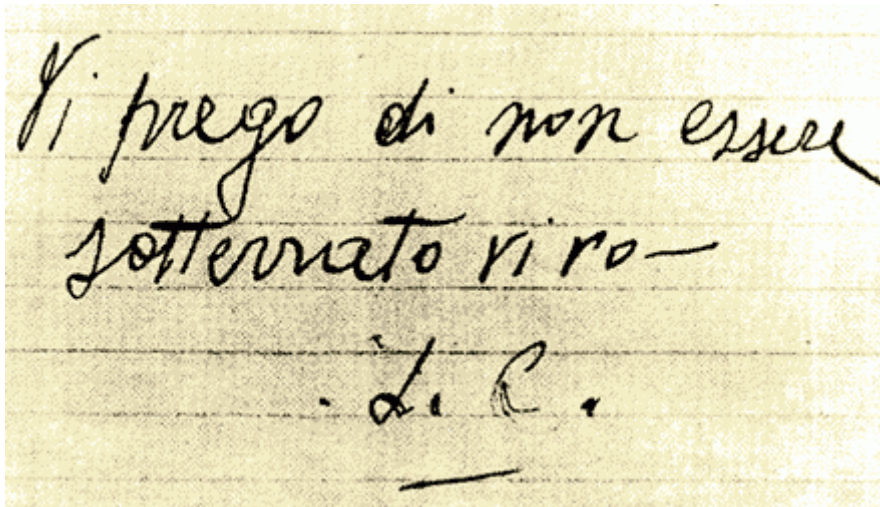 Vi prego di non essere
sotterrato vivo—
. L. C.